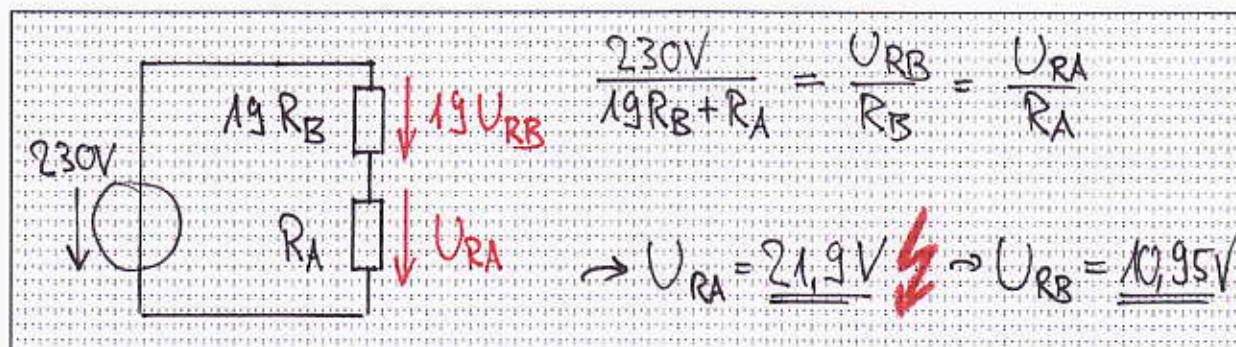 230V
19 R_B
19 U_RB
R_A
U_RA
230V / (19R_B + R_A) = U_RB / R_B = U_RA / R_A
→ U_RA = 21,9V → U_RB = 10,95V